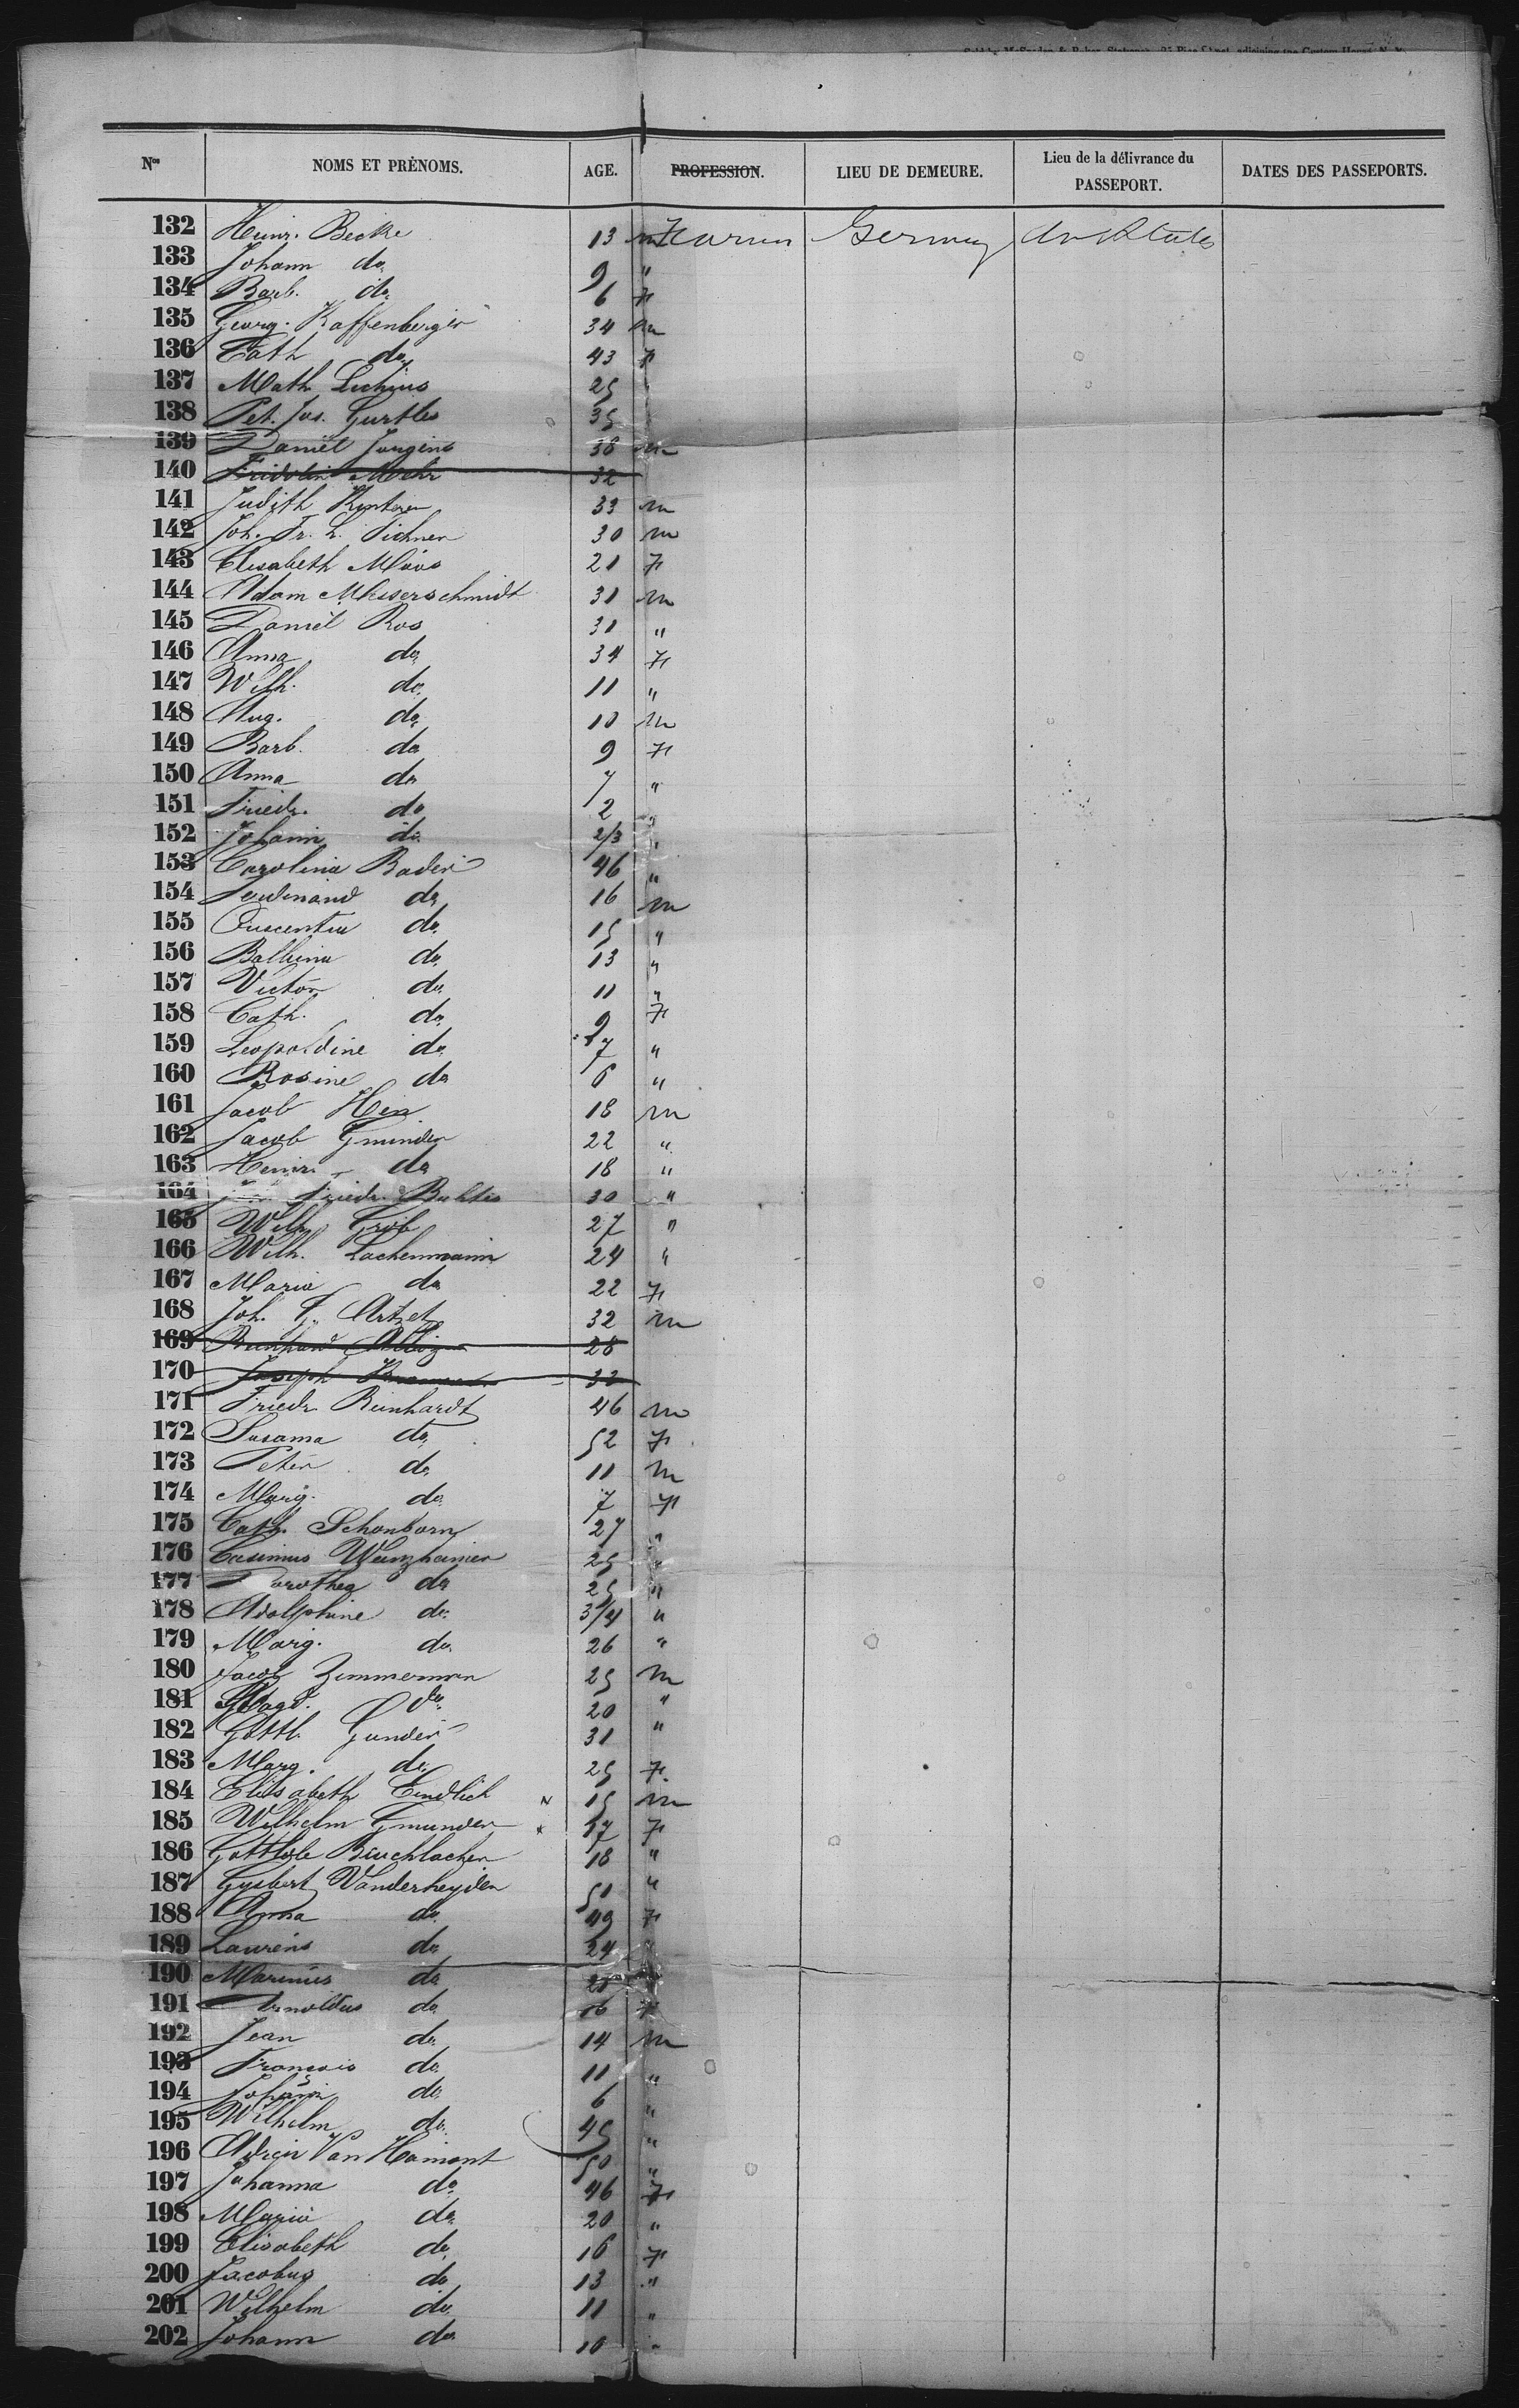 Nos NOMS ET PRÉNOMS. AGE. PROFESSION. LIEU DE DEMEURE. Lieu de la délivrance du PASSEPORT. DATES DES PASSEPORTS.
132 Heinr. Becke 13 m Germany
133 Johann do 9 "
134 Barb. do 6 F
135 Georg. Kaffenberger 34 m
136 Cath do 43 F
137 Math Luchius 25
138 Pet. Jos. Gurtles 35
139 Daniel Jungins 38 m
140 Fridolin Mehr 32
141 Judith 33 m
142 Joh. Fr. L. Pichner 30 m
143 Elisabeth Moos 21 F
144 Adam Messerschmidt 31 m
145 Daniel Ros 31 "
146 Anna do 34 F
147 Wilh. do 11 "
148 Aug. do 10 m
149 Barb. do 9 F
150 Anna do 7 "
151 Friedr. do 2 "
152 Johann do 2/3 "
153 Carolina Bader 46 "
154 Ferdinand do 16 m
155 do 15 "
156 Balbina do 13 "
157 Victor do 11 "
158 Cath. do 9 F
159 Leopoldine do 7 "
160 Rosine do 6 "
161 Jacob Hein 18 m
162 Jacob Gmunder 22 "
163 Heinr. do 18 "
164 Friedr. 30 "
165 Wilh. Grob 27 "
166 Wilh. Lachenmann 24 "
167 Maria do 22 F
168 Joh. G. Artzet 32 m
169 28
170 Joseph 33
171 Friedr Reinhardt 46 m
172 Susanna do 52 F
173 Peter do 11 m
174 Marg. do 7 F
175 Cath. Schonborn 27 "
176 Casimus Weinzheimer 25 "
177 Dorothea do 25 "
178 Adolphine do 3/4 "
179 Marg. do 26 "
180 Jacob Zimmerman 25 m
181 Magd. do 20 "
182 Gottl. Gunder 31 "
183 Marg. do 25 F
184 Elisabeth Endlich 15 m
185 Wilhelm Gmunder 17 F
186 Gottlob 18 "
187 Gysbert Vanderheyden 51 "
188 Anna do 49 F
189 Laurens do 24 "
190 Marinus do
191 Arnoldus do 16 F
192 Jean do 14 m
193 François do 11 "
194 Johann do 6 "
195 Wilhelm do 45 "
196 Adrein Van Hamont 50 "
197 Johanna do 46 F
198 Maria do 20 "
199 Elisabeth do 16 F
200 Jacobus do 13 "
201 Wilhelm do 11 "
202 Johann do 10 "